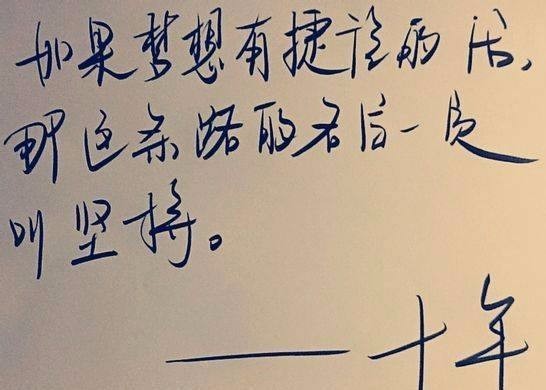 如果梦想有捷径的话,
那这条路的名字一定
叫坚持。
——十年